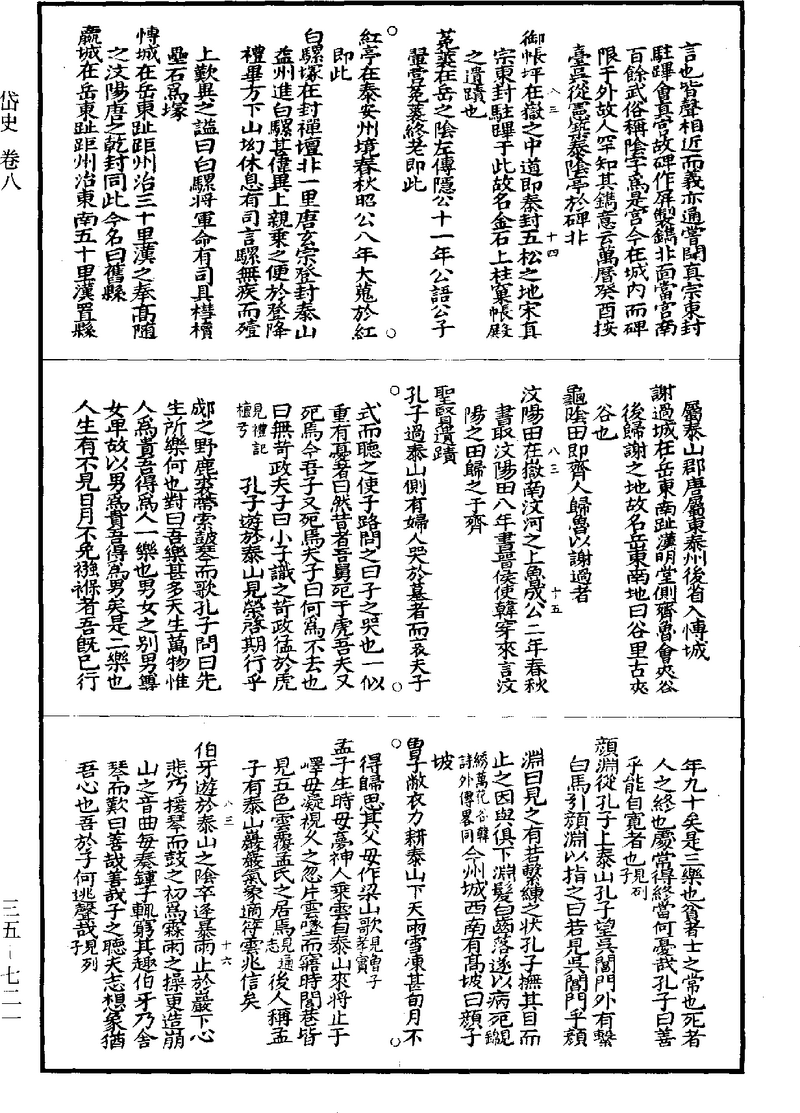 岱史 卷八
三五－七二一
言也皆聲相近而義亦通嘗聞真宗東封
駐蹕會真宮故碑作屏製鐫北面當宮南
百餘武俗稱陰字爲是宮今在城內而碑
限于外故人罕知其鐫意云萬曆癸酉按
臺吳從憲築泰陰亭於碑北
八三
十四
御帳坪在嶽之中道即秦封五松之地宋真
宗東封駐蹕于此故名金石上柱窠帳殿
之遺蹟也
菟裘在岳之陰左傳隱公十一年公語公子
翬營菟裘終老即此
紅亭在泰安州境春秋昭公八年大蒐於紅
即此
白騾塚在封禪壇北一里唐玄宗登封泰山
益州進白騾甚偉異上親乘之便於登降
禮畢方下山坳休息有司言騾無疾而殪
上歎異之謚曰白騾將軍命有司具槥櫝
壘石爲塚
愽城在岳東趾距州治三十里漢之奉高隋
之汶陽唐之乾封同此今名曰舊縣
嬴城在岳東趾距州治東南五十里漢置縣
屬泰山郡唐屬東泰州後省入愽城
謝過城在岳東南趾漢明堂側齊魯會夾谷
後歸謝之地故名岳東南地曰谷里古夾
谷也
龜陰田即齊人歸魯以謝過者
八三
十五
汶陽田在嶽南汶河之上魯成公二年春秋
書取汶陽田八年書晉侯使韓穿來言汶
陽之田歸之于齊
聖賢遺蹟
孔子過泰山側有婦人哭於墓者而哀夫子
式而聽之使子路問之曰子之哭也一似
重有憂者曰然昔者吾舅死于虎吾夫又
死焉今吾子又死焉夫子曰何爲不去也
曰無苛政夫子曰小子識之苛政猛於虎
見禮記檀弓 孔子遊於泰山見榮啓期行乎
郕之野鹿裘帶索鼓琴而歌孔子問曰先
生所樂何也對曰吾樂甚多天生萬物惟
人爲貴吾得爲人一樂也男女之別男尊
女卑故以男爲貴吾得爲男矣是二樂也
人生有不見日月不免襁褓者吾既已行
年九十矣是三樂也貧者士之常也死者
人之終也處常得終當何憂哉孔子曰善
乎能自寬者也見列子
顏淵從孔子上泰山孔子望吳閶門外有繫
白馬引顏淵以指之曰若見吳閶門乎顏
淵曰見之有若繫練之狀孔子撫其目而
止之因與俱下淵髮白齒落遂以病死見錦
綉萬花谷韓詩外傳畧同 今州城西南有高坡曰顏子
坡
曽子敝衣力耕泰山下天雨雪凍甚旬月不
得歸思其父母作梁山歌見曽子孝實
孟子生時母夢神人乘雲自泰山來將止于
嶧母凝視久之忽片雲墜而寤時閭巷皆
見五色雲覆孟氏之居焉見通志 後人稱孟
子有泰山巖巖氣象適符雲兆信矣
八三
十六
伯牙遊於泰山之陰卒逢暴雨止於巖下心
悲乃援琴而鼓之初爲霖雨之操更造崩
山之音曲每奏鍾子輒窮其趣伯牙乃舍
琴而歎曰善哉善哉子之聽夫志想象猶
吾心也吾於子何逃聲哉見列子